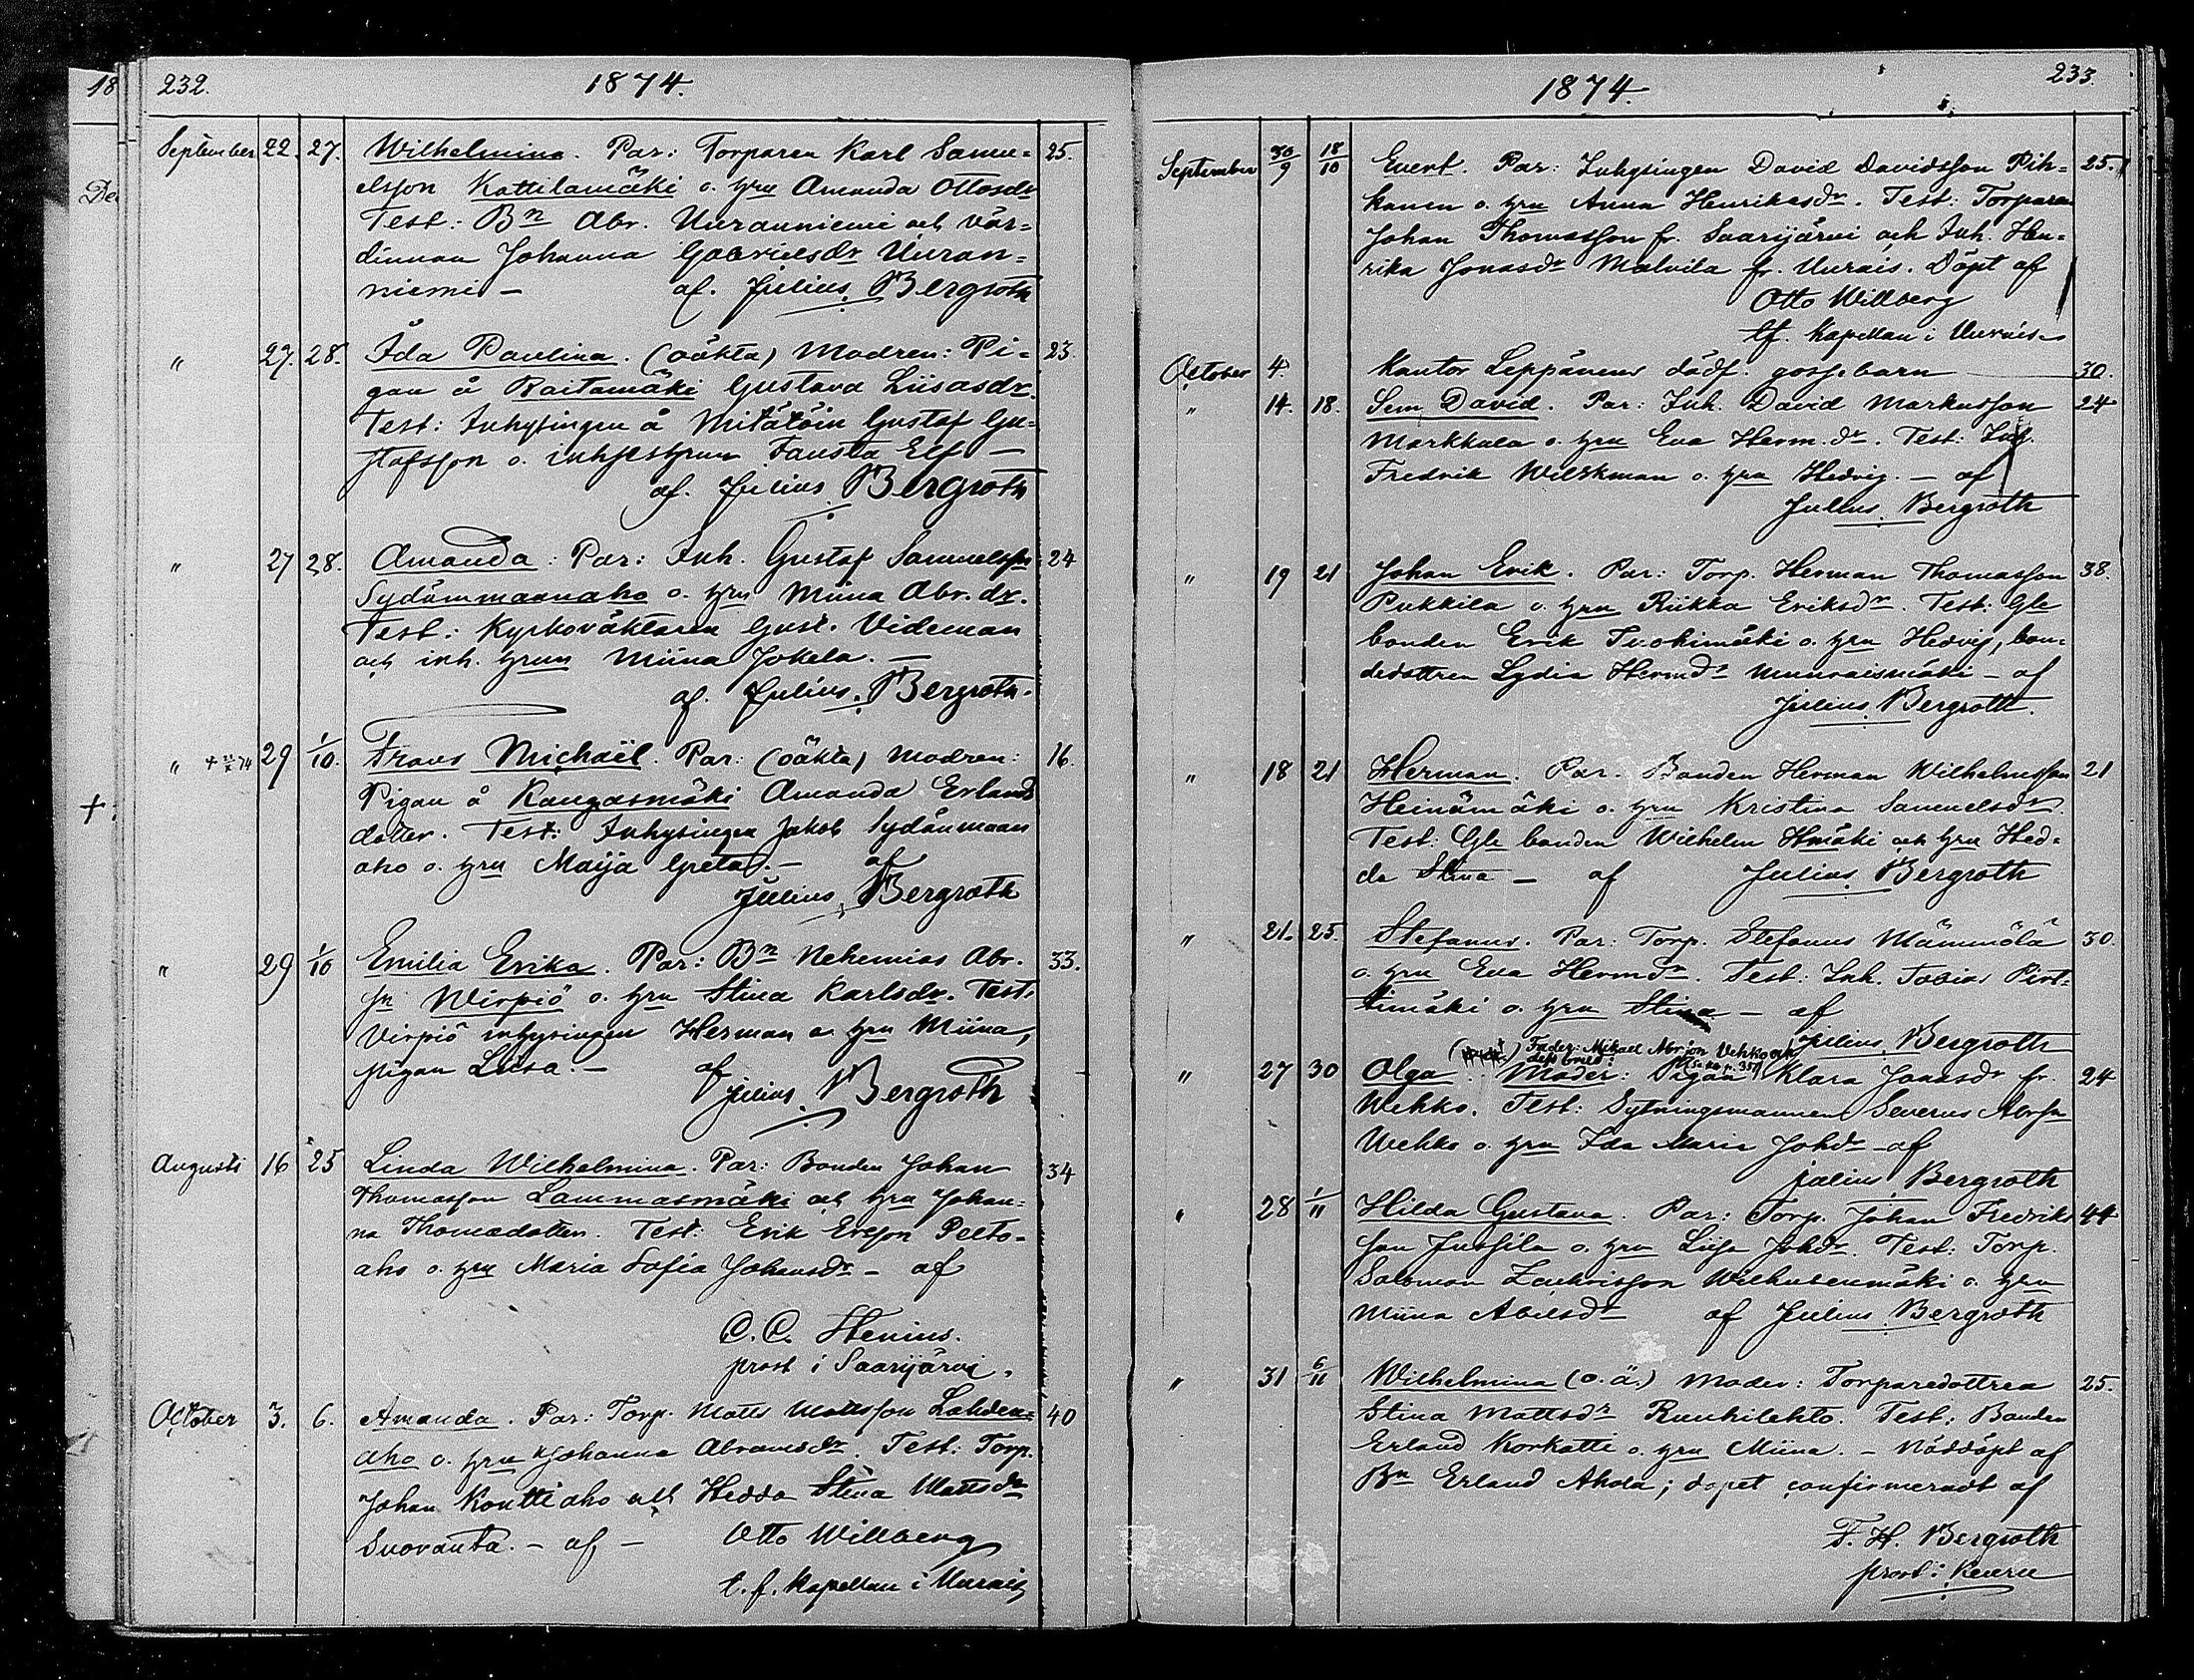 18
232.
1874.
September 22. 27. Wilhelmina. Par: Torparen Karl Samu= 25.
elsson Kattilamäki o. hru Amanda Ottosdr
Test: Bn Abr. Uurauniemi och vär=
dinnan Johanna Gabrielsdr Uuran=
niemi – af. Julius Bergroth
" 27. 28. Ida Paulina. (oäkta) Modren: Pi= 23.
gan å Raitamäki Gustava Liisasdr.
Test: Inhysingen å Mitätöin Gustaf Gu=
stafsson o. inhyseshrun Fausta Elf –
af. Julius Bergroth
" 27 28. Amanda: Par: Inh. Gustaf Samuelssn 24
Sydämmaanaho o. hru Miina Abr.dr.
Test: Kyrkoväktaren Gust. Videman
och inh. hrun Miina Jokela. –
af. Julius Bergroth.
" + 74 29 1/10. Frans Michaël. Par: (oäkta) Modren: 16.
Pigan å Kangasmäki Amanda Erlands
dotter. Test: Inhysingen Jakob Sydänmaan
aho o. hru Maija Greta. – af
Julius Bergroth
" 29 1/10 Emilia Erika. Par: Bn Nehemias Abr. 33.
sn Wirpiö o. hru Stina Karlsdr. Test:
Virpiö inhysingen Herman o. hru Miina,
pigan Liisa. – af
Julius Bergroth
Augusti 16 25 Linda Wilhelmina. Par: Bonden Johan 34
Thomasson Lammasmäki och hru Johan=
na Thomasdotter. Test: Erik Ersson Pelto=
aho o. hru Maria Sofia Johansdr – af
C. C. Stenius.
prost i Saarijärvi.
October 3. 6. Amanda. Par: Torp. Matts Mattsson Lahden= 40
aho o. hru Johanna Abramsdr. Test: Torp.
Johan Konttiaho och Hedda Stina Mattsdr
Suovanta. – af – Otto Willberg
t.f. Kapellan i Uurais
De
+
1874.
233.
September 30/9 18/10 Evert. Par: Inhysingen David Davidsson Pih= 25.
kanen o. hru Anna Henriksdr. Test: Torparen
Johan Thomasson fr. Saarijärvi och Inh. Hen=
rika Jonasdr Malvila fr. Uurais. Döpt af
Otto Willberg
tf. Kapellan i Uurais
October 4. Kantor Leppänens dödf. gossebarn 30.
" 14. 18. Sem David. Par: Inh. David Markusson 24
Markkula o. hru Eva Herm.dr. Test: Inh.
Fredrik Wilskman o. hru Hedvig. – af
Julius Bergroth
" 19 21 Johan Erik. Par: Torp. Herman Thomasson 38.
Pukkila o. hru Riikka Eriksdr. Test: Gle
bonden Erik Tuohimäki o. hru Hedvig, bon=
dedottren Lydia Hermdr Muuraismäki – af
Julius Bergroth.
" 18 21 Herman. Par. Bonden Herman Wilhelmsson 21
Heinämäki o. hru Kristina Samuelsdr.
Test: Gle bonden Wilhelm Hmäki och hru Hed=
da Stina – af Julius Bergroth
" 21. 25. Stefanus. Par: Torp. Stefanus Mämmölä 30.
o. hru Eva Hermdr. Test: Inh. Tobias Pirt=
timäki o. hru Stina – af
Julius Bergroth
Fader: Mikael Abrson Vehko och
" 27 30 Olga. Moder: Pigan Klara Jonasdr fr. 24
Wehko. Test: Sytningsmannen Severus Abrsn
Wehko o. hru Ida Maria Johdr – af
Julius Bergroth
" 28 1/11 Hilda Gustava. Par: Torp. Johan Fredriks 44
son Jussila o. hru Liisa Johdr. Test: Torp.
Salomon Zachrisson Wilhusenmäki o. hru
Miina Abelsdr af Julius Bergroth
" 31 6/11 Wilhelmina (o.ä.) Moder: Torparedottren 25.
Stina Mattsdr Ruuhilehto. Test: Bonden
Erland Korkatti o. hru Miina. – Nöddöpt af
Bn Erland Ahola; dopet confirmeradt af
F. H. Bergroth
prost i Keuru